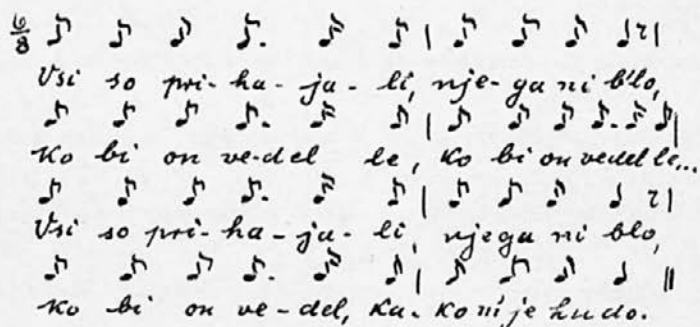 6/8
Vsi so pri-ha-ja-li, nje-ga ni b'lo,
Ko bi on ve-del le, ko bi on vedel le...
Vsi so pri-ha-ja-li, njega ni blo,
Ko bi on ve-del, ka-ko ni je hudo.